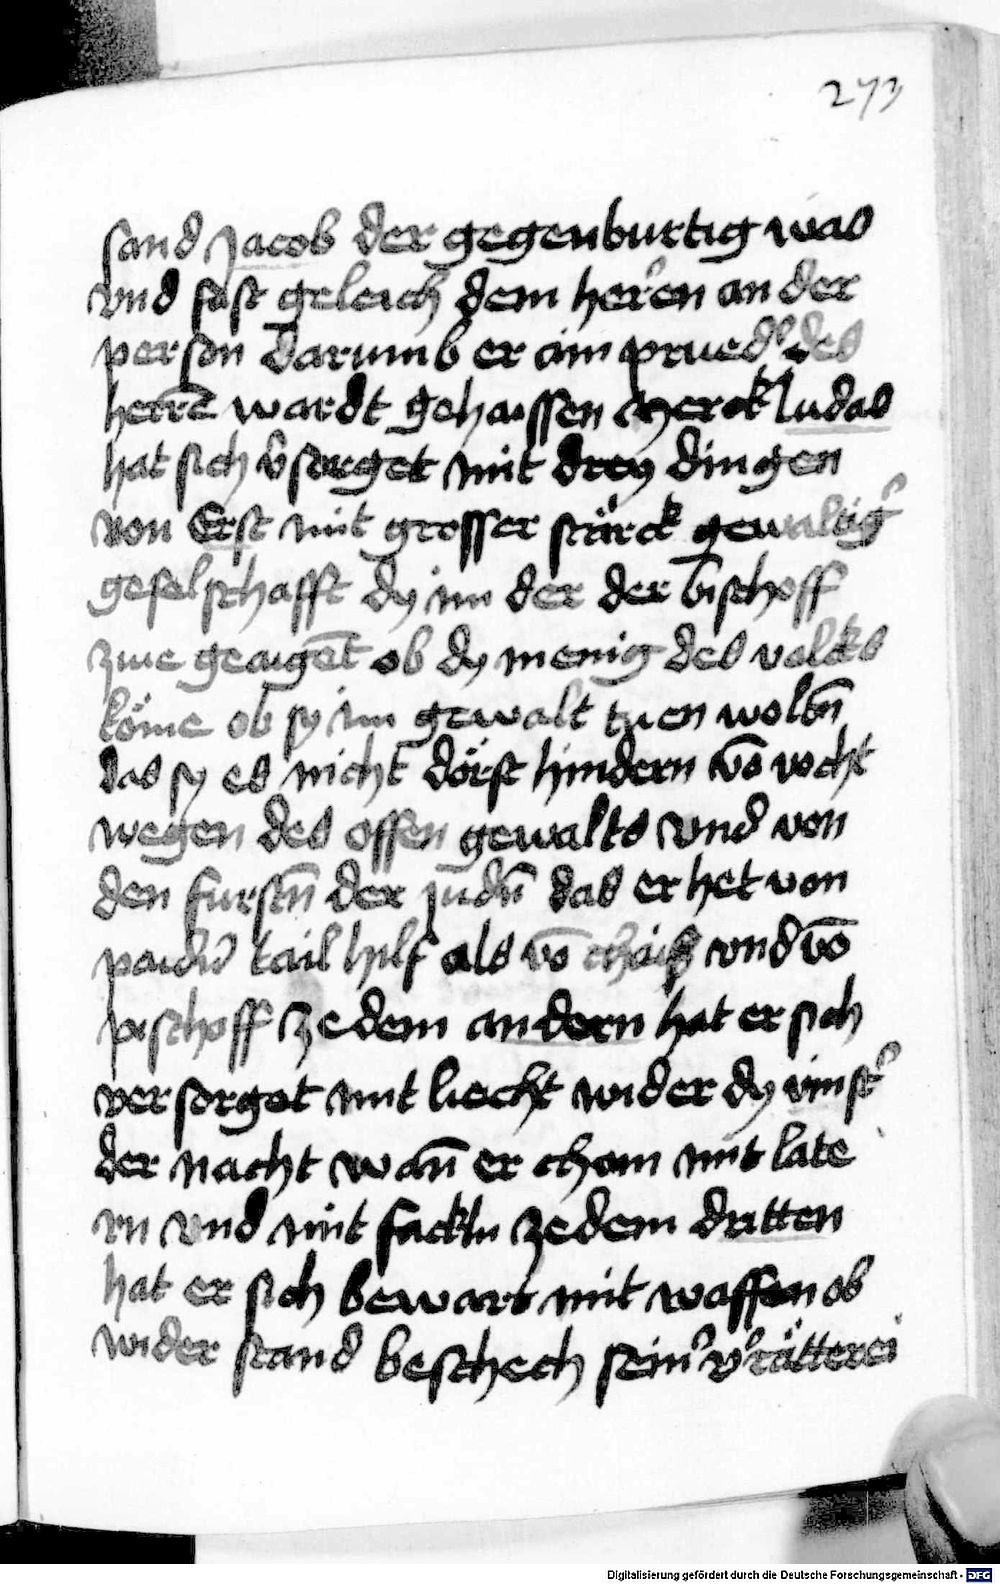 273
sand Jacob der gegenburtig was
vnd fast geleich dem herren an der
person darumb er ain prueder des
herrē wardt gehaissen Judas
hat sich v̄sorget mit drey dingen
von Erst mit grosser stärck gewaltigˀ
geselschafft dy im der der bischoff
zue geaigēt ob dy menig des volcks
köme ob sy im gewalt tuen woltn̄
das sy es nicht dörst hindern vō vocht
wegen des offen gewalts vnd von
den furstn̄ der judn̄ das er het von
paidn̄ tail hilf als vō vnd vō
pischoff ze dem andern hat er sich
versorget mit liecht wider dy vinstˀ
der nacht wan̄ er chom mit late
rn vnd mit fackln ze dem dritten
hat er sich bewart mit waffen ob
wider stand beschech seinˀ vˀrätterei
Digitalisierung gefördert durch die Deutsche Forschungsgemeinschaft - DFG